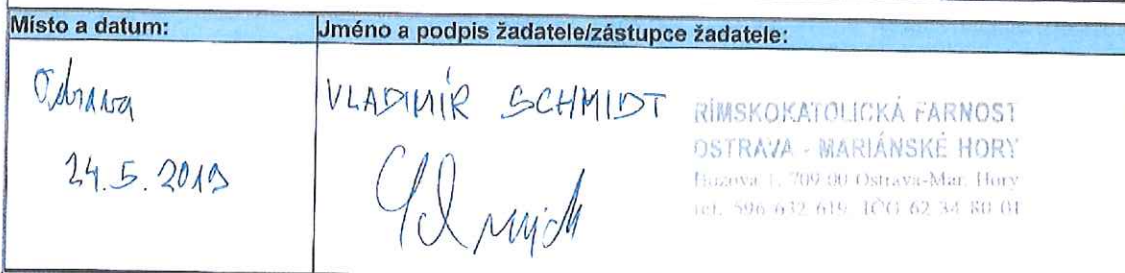 Místo a datum:
Jméno a podpis žadatele/zástupce žadatele:
Ostrava
24.5.2019
VLADIMÍR SCHMIDT
Schmidt
ŘÍMSKOKATOLICKÁ FARNOST
OSTRAVA - MARIÁNSKÉ HORY
1, 709 00 Ostrava-Mar. Hory
tel. 596 632 619, IČO 62 34 80 01